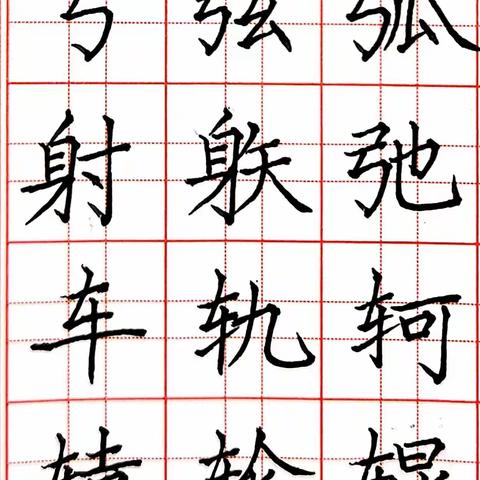 弓 弦 弧
射 䠶 弛
车 轨 轲
辊